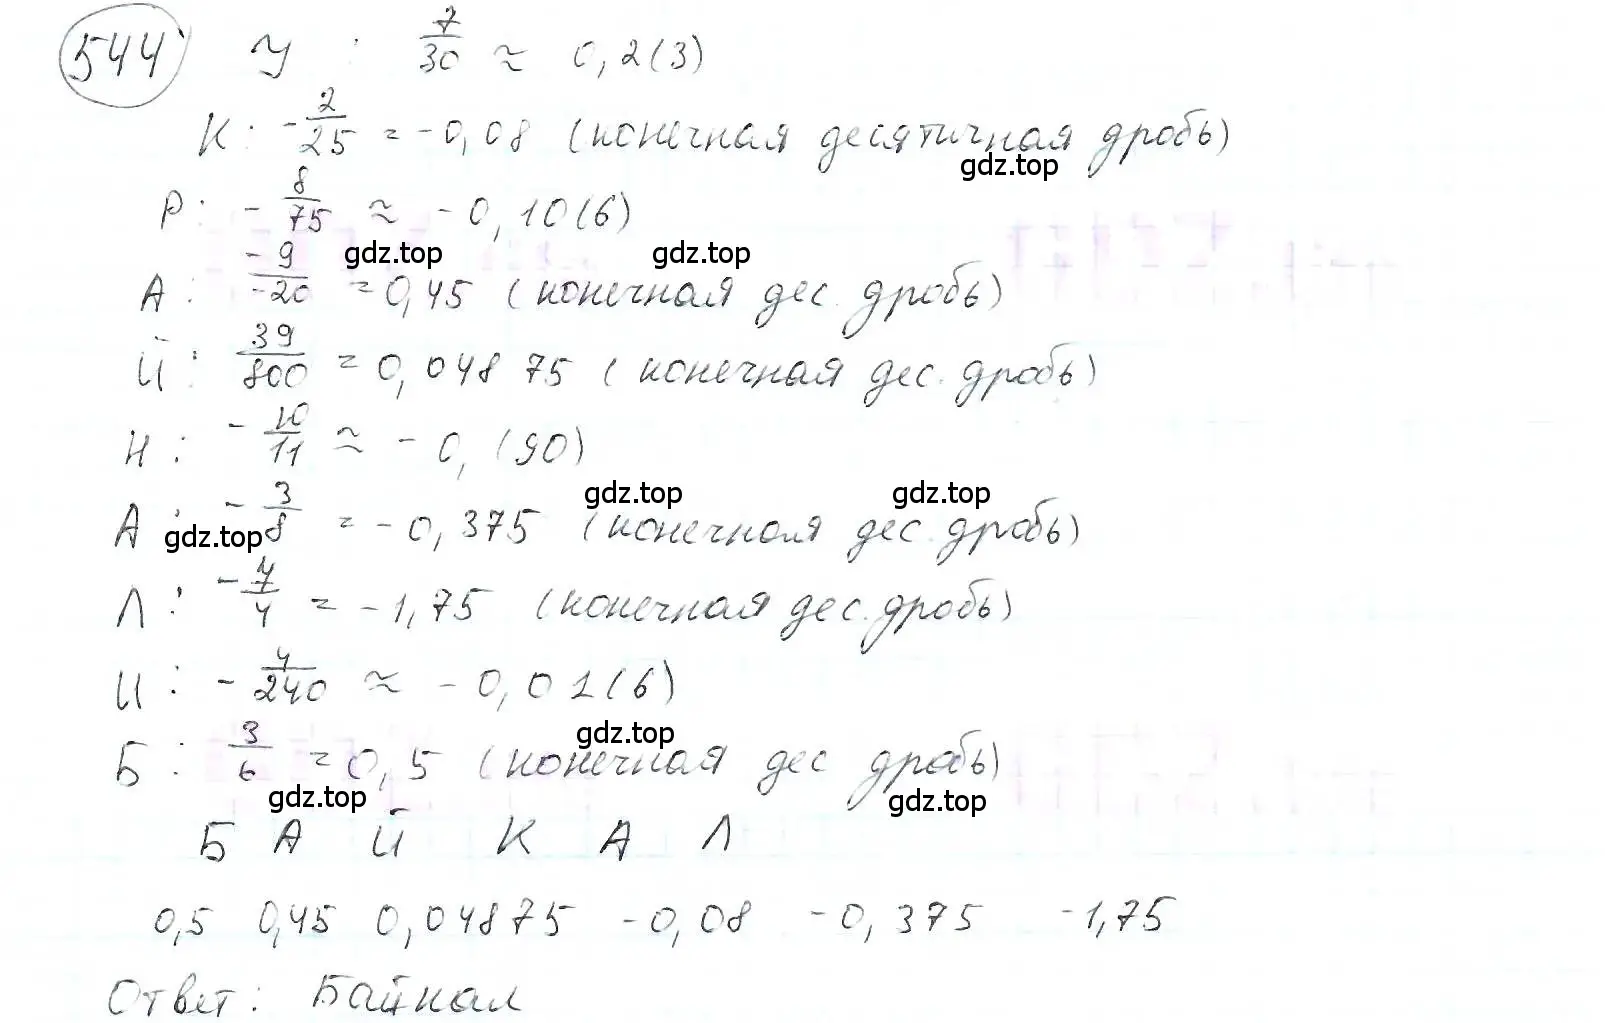 544 У : 7/30 ≈ 0,2(3)
К: -2/25 = -0,08 (конечная десятичная дробь)
gdz.top
Р: -8/75 ≈ -0,10(6)
gdz.top gdz.top
А: -9/-20 = 0,45 (конечная дес. дробь)
Й: 39/800 = 0,04875 (конечная дес. дробь)
Н: -10/11 ≈ -0,(90)
gdz.top gdz.top
А: -3/8 = -0,375 (конечная дес. дробь)
gdz.top
Л: -7/4 = -1,75 (конечная дес. дробь)
И: -4/240 ≈ -0,01(6)
gdz.top
Б: 3/6 = 0,5 (конечная дес дробь)
gdz.top gdz.top
Б А Й К А Л
0,5 0,45 0,04875 -0,08 -0,375 -1,75
Ответ: Байкал